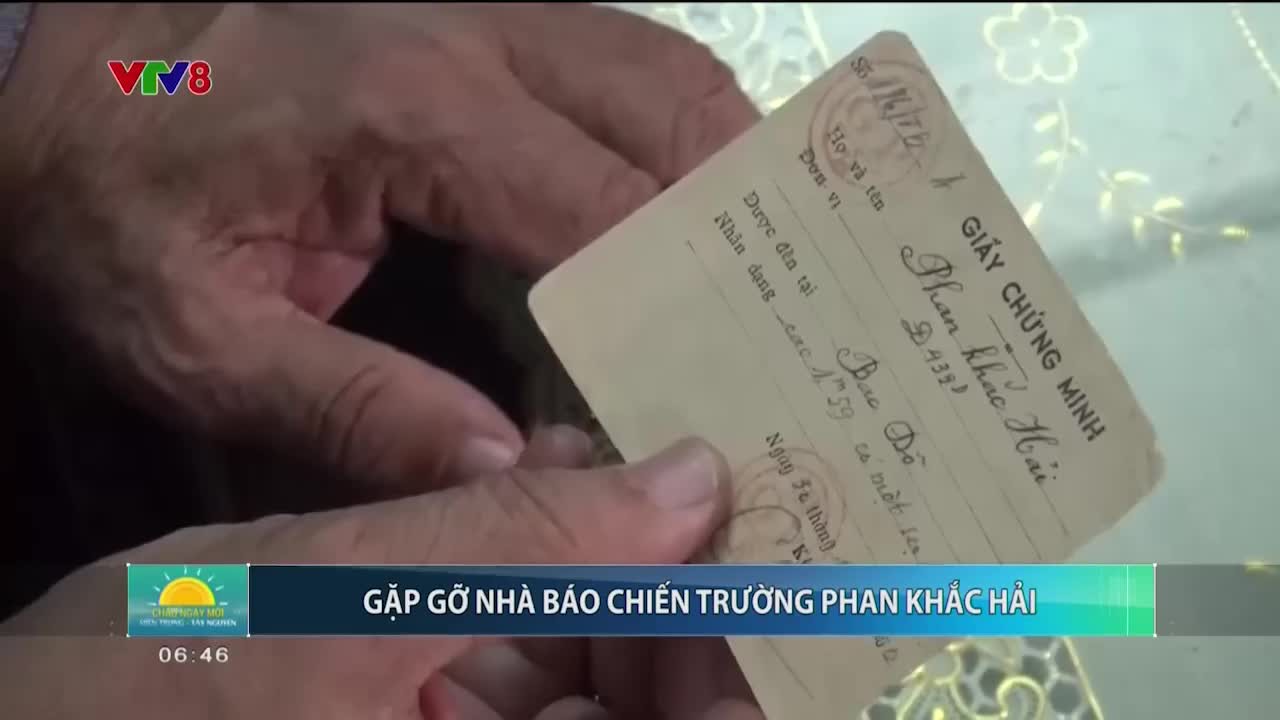 VTV8
Số 116/TB
GIẤY CHỨNG MINH
Họ và tên Phan Khắc Hải
Đơn vị
Được đến tại
Nhân dạng cao 1m59 có một
Ngày 30 tháng
CHÀO NGÀY MỚI
MIỀN TRUNG - TÂY NGUYÊN
GẶP GỠ NHÀ BÁO CHIẾN TRƯỜNG PHAN KHẮC HẢI
06:46